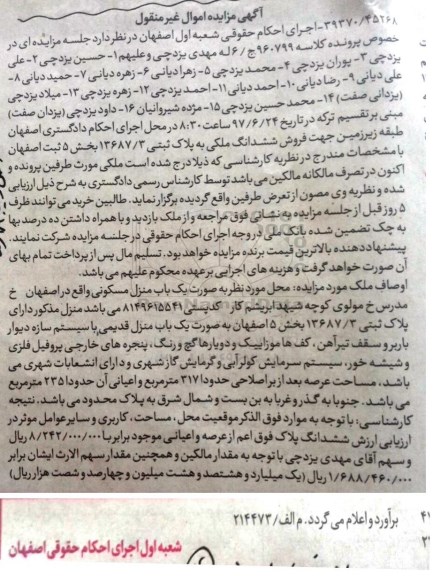 آگهی مزایده اموال غیر منقول
۳۹۳۷۰/۴۵۲۶۸-اجرای احکام حقوقی شعبه اول اصفهان در نظر دارد جلسه مزایده ای در
خصوص پرونده کلاسه ۹۶۰۷۹۹ ج / ۶ له مهدی یزدچی و علیهم ۱- حسین یزدچی ۲- علی
یزدچی ۳- پوران یزدچی ۴- محمد یزدچی ۵- زهرا دیانی ۶- زهره دیانی ۷- حمید دیانی ۸-
علی دیانی ۹- رضا دیانی ۱۰- احمد دیانی ۱۱- احمد یزدچی ۱۲- زهره یزدچی ۱۳- میلاد یزدچی
(یزدانی صفت) ۱۴- محمد حسین یزدچی ۱۵- مژده شیروانیان ۱۶- داود یزدچی (یزدان صفت)
مبنی بر تقسیم ترکه در تاریخ ۹۷/۶/۲۴ ساعت ۸:۳۰ در محل اجرای احکام دادگستری اصفهان
طبقه زیرزمین جهت فروش ششدانگ ملکی به پلاک ثبتی ۱۳۶۸۷/۳ بخش ۵ ثبت اصفهان
با مشخصات مندرج در نظریه کارشناسی که ذیلا درج شده است ملکی مورث طرفین پرونده و
اکنون در تصرف مالکانه مالکین می باشد توسط کارشناس رسمی دادگستری به شرح ذیل ارزیابی
شده و نظریه وی مصون از تعرض طرفین واقع گردیده برگزار نماید. طالبین خرید می توانند ظرف
۵ روز قبل از جلسه مزایده به نشانی فوق مراجعه و از ملک بازدید و با همراه داشتن ده درصد بها
به چک تضمین شده بانک ملی در وجه اجرای احکام حقوقی در جلسه مزایده شرکت نمایند.
پیشنهاد دهنده بالاترین قیمت برنده مزایده خواهد بود. تسلیم مال پس از پرداخت تمام بهای
آن صورت خواهد گرفت و هزینه های اجرایی بر عهده محکوم علیهم می باشد.
اوصاف ملک مورد مزایده: محل مورد نظر به صورت یک باب منزل مسکونی واقع در اصفهان خ
مدرس خ مولوی کوچه شهید ابریشم کار کدپستی ۸۱۴۹۶۱۵۵۴۱ می باشد منزل مذکور دارای
پلاک ثبتی ۱۳۶۸۷/۳ بخش ۵ اصفهان به صورت یک باب منزل قدیمی با سیستم سازه دیوار
باربر و سقف تیرآهن، کف ها موزاییک و دیوارها گچ و رنگ، پنجره های خارجی پروفیل فلزی
و شیشه خور، سیستم سرمایش کولر آبی و گرمایش گاز شهری و دارای انشعابات شهری می
باشد، مساحت عرصه بعد از بر اصلاحی حدودا ۳۱۷ مترمربع و اعیانی آن حدودا ۲۳۵ مترمربع
می باشد. جنوبا به گذر و غربا به بن بست و شمال شرق به پلاک محدود می باشد. نتیجه
کارشناسی: با توجه به موارد فوق الذکر موقعیت محل، مساحت، کاربری و سایر عوامل موثر در
ارزیابی ارزش ششدانگ پلاک فوق اعم از عرصه و اعیانی موجود برابر با ۸/۲۴۲/۰۰۰/۰۰۰ ریال
و سهم آقای مهدی یزدچی با توجه به مقدار مالکین و همچنین مقدار سهم الارث ایشان برابر
۱/۶۸۸/۴۶۰/۰۰۰ ریال (یک میلیارد و هشتصد و هشت میلیون و چهارصد و شصت هزار ریال)
برآورد و اعلام می گردد. م الف/۲۱۴۴۷۳
شعبه اول اجرای احکام حقوقی اصفهان